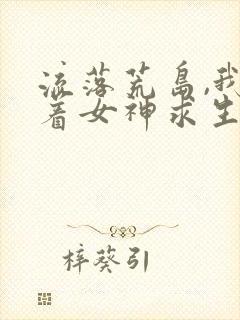 流落荒岛,我
着女神求生
梓葵引